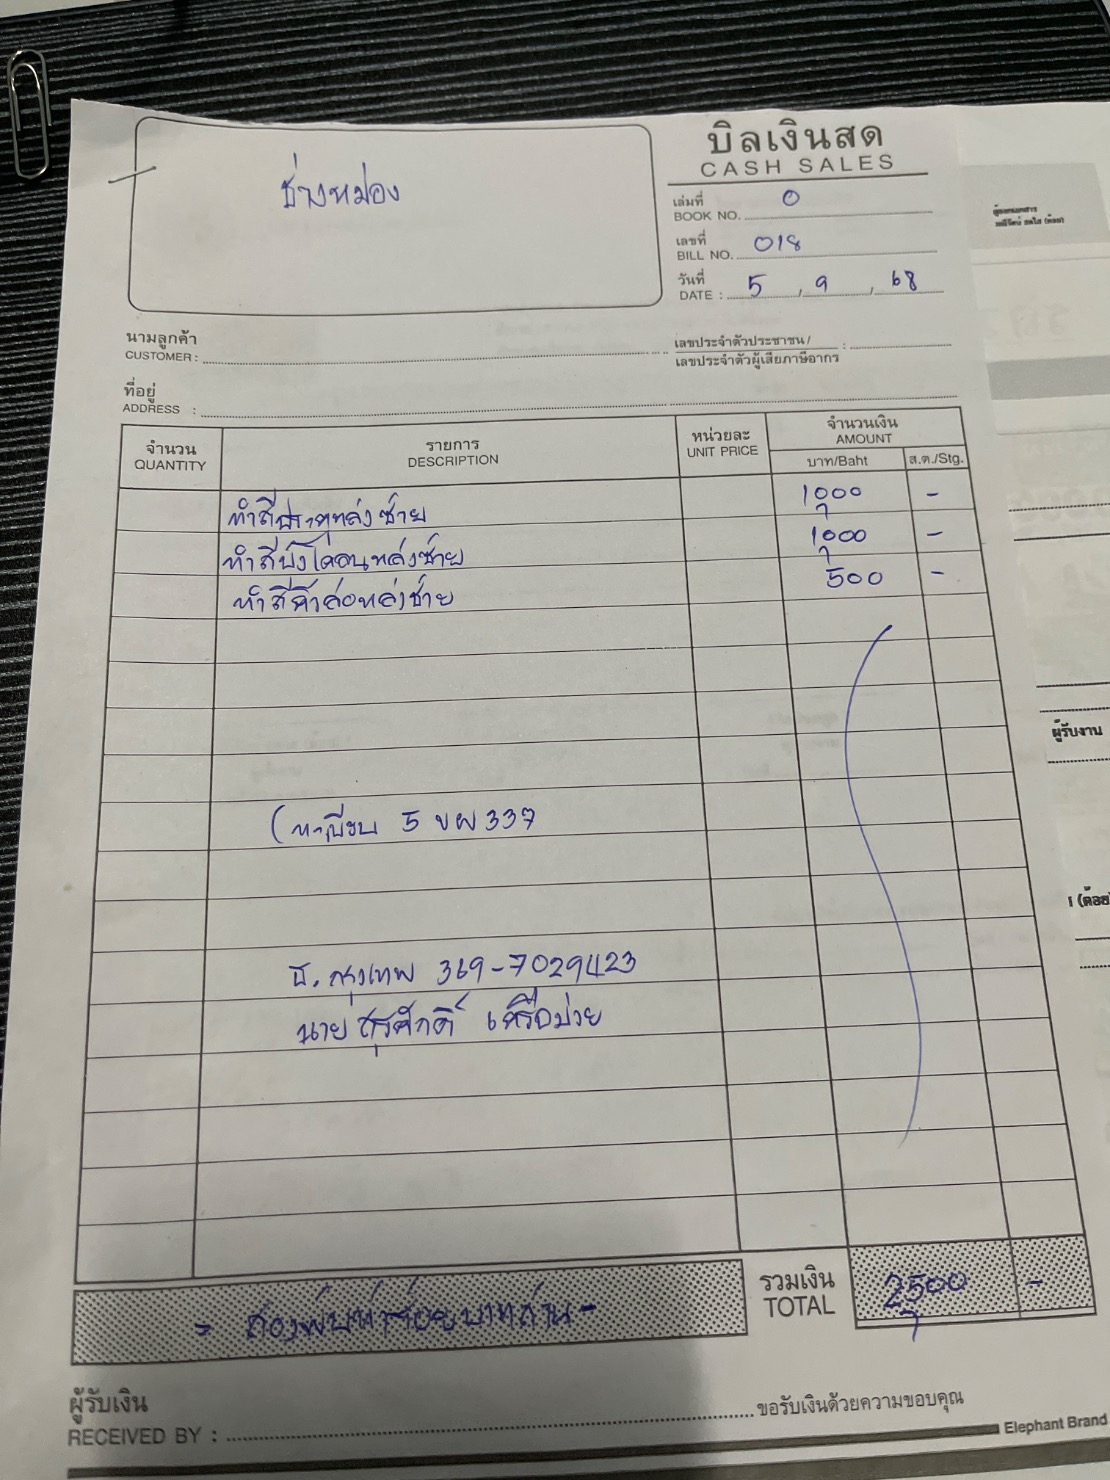 บิลเงินสด
CASH SALES
ช่างหม่อง
เล่มที่ 0
BOOK NO.
เลขที่
BILL NO. 018
วันที่
DATE : 5 , 9 , 68
นามลูกค้า
CUSTOMER :
เลขประจำตัวประชาชน/
เลขประจำตัวผู้เสียภาษีอากร :
ที่อยู่
ADDRESS :
จำนวน รายการ หน่วยละ จำนวนเงิน
QUANTITY DESCRIPTION UNIT PRICE AMOUNT
บาท/Baht ส.ต./Stg.
ทำสีประตูหลังซ้าย 1,000 -
ทำสีบังโคลนหลังซ้าย 1,000 -
ทำสีคิ้วล้อหลังซ้าย 500 -
(ทะเบียน 5 ขผ 337
ธ. กรุงเทพ 369-7029423
นาย สุรศักดิ์
รวมเงิน
TOTAL 2,500 -
- สองพันห้าร้อยบาทถ้วน -
ผู้รับเงิน
RECEIVED BY :
ขอรับเงินด้วยความขอบคุณ
Elephant Brand
ผู้รับงาน